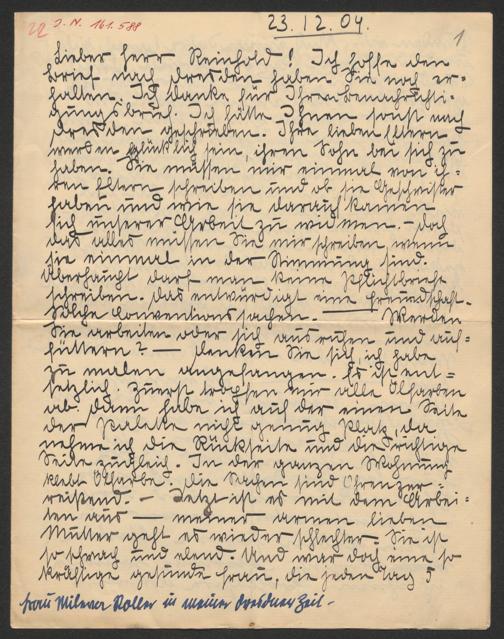 22 J. N. 161.588
23.12.04.
1
Lieber Herr Reinhold! Ich hoffe den
Brief nach Dresden haben Sie noch er-
halten. Ich danke für Ihren Benachrichti-
gungsbrief. Ich hätte Ihnen sonst nach
Dresden geschrieben. Ihre lieben Eltern
werden glücklich sein, ihren Sohn bei sich zu
haben. Sie müssen mir einmal von ih-
ren Eltern schreiben und ob sie Geschwister
haben und wie sie darauf kamen
sich unserer Arbeit zu widmen. – Doch
das alles müssen Sie mir schreiben, wenn
sie einmal in der Stimmung sind.
Überhaupt darf man keine Pflichtbriefe
schreiben. Das entwürdigt eine Freundschaft.
Solche Conventionssachen. — Werden
Sie arbeiten oder sich ausruhen und auf-
füttern? — Denken Sie sich, ich habe
zu malen angefangen. Es ist ent-
setzlich. Zuerst tropfen mir alle Ölfarben
ab. Dann habe ich auf der einen Seite
der Palette nicht genug Platz, da
nehme ich die Rückseite und die richtige
Seite zugleich. In der ganzen Wohnung
klebt Ölfarbe. Die Sachen sind Ohrenzer-
reißend. – Jetzt ist es mit dem Arbei-
ten aus — meiner armen lieben
Mutter geht es wieder schlechter. Sie ist
so schwach und elend. Und war doch eine so
kräftige gesunde Frau, die jeden Tag 5
Frau Milewa Roller in meiner Dresdner Zeit –